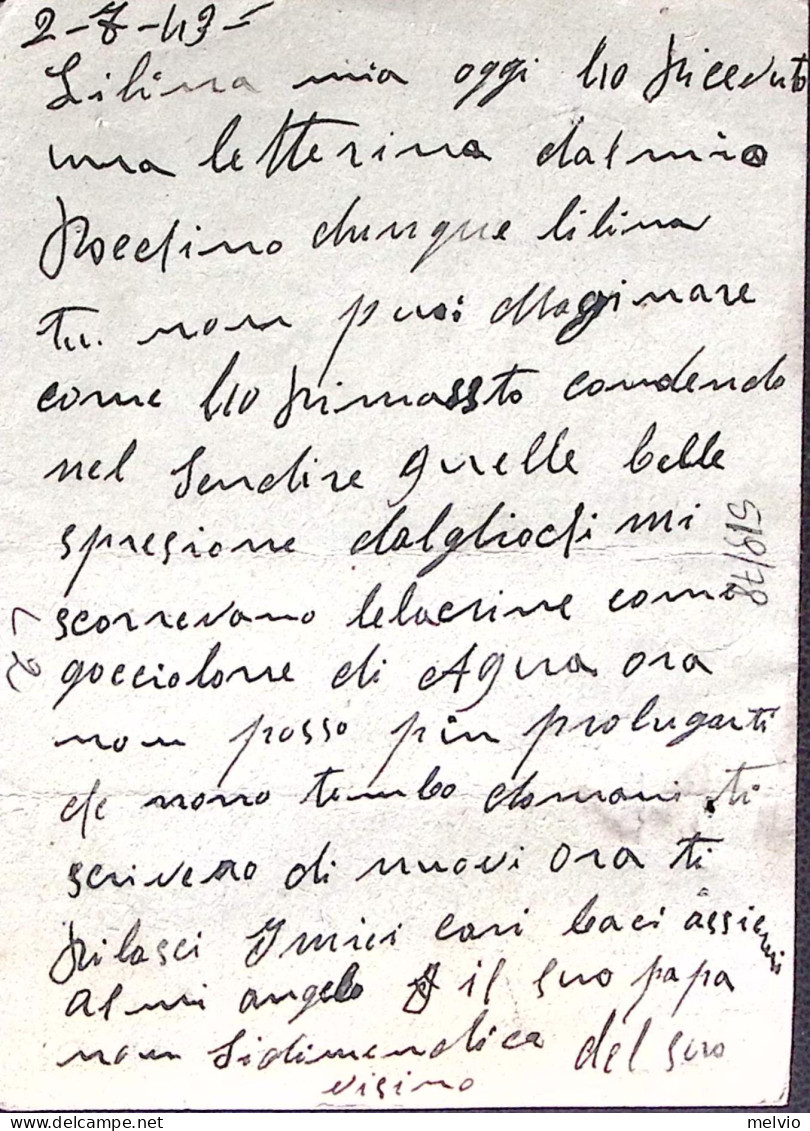 2-7-43=
Lilina mia oggi ho riceuto
una letterina dal mio
Rocchino dunque lilina
tu. non puoi Maginare
come ho rimassto condendo
nel sendire quelle belle
spresione dalgliochi mi
scorrevano lelacrine come
gocciolone di Agua ora
non posso piu prolugarti
che nono tembo domani ti
scrivero di nuovi ora ti
rilasci I miei cari baci assiemi
al mi angelo il suo papa
non sidimendica del suo
visino
518/78
L2
melvio